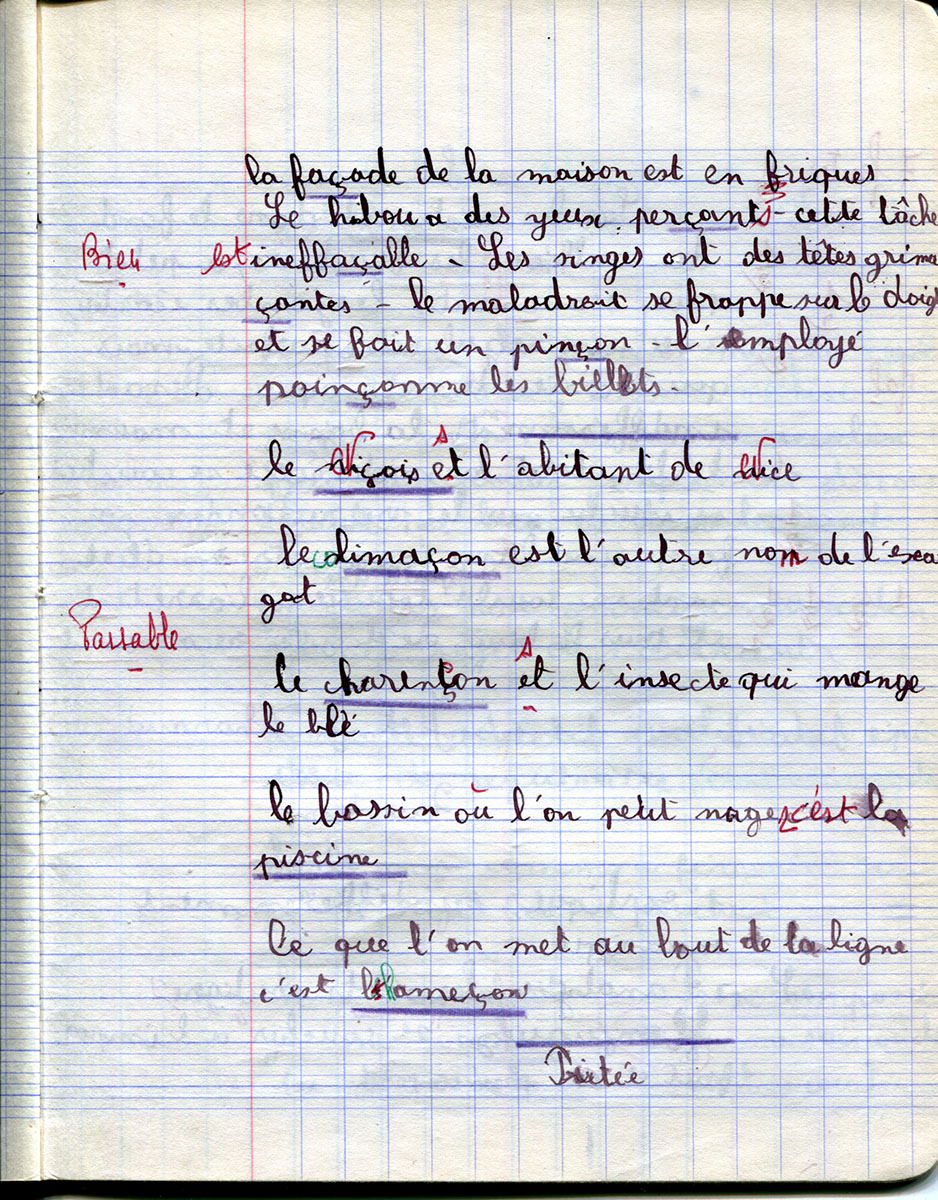 la façade de la maison est en briques
Le hibou a des yeux perçants - cette tâche
Bien est ineffaçable - Les singes ont des têtes grima
çantes - le maladroit se frappe sur le doigt
et se fait un pinçon - l'employé
poinçonne les billets.
le Niçois est l'abitant de Nice
le colimaçon est l'autre nom de l'esca
got
Passable
le charençon est l'insecte qui mange
le blé
le bassin où l'on peut nager c'est la
piscine
Ce que l'on met au bout de la ligne
c'est l'hameçon
Dictée